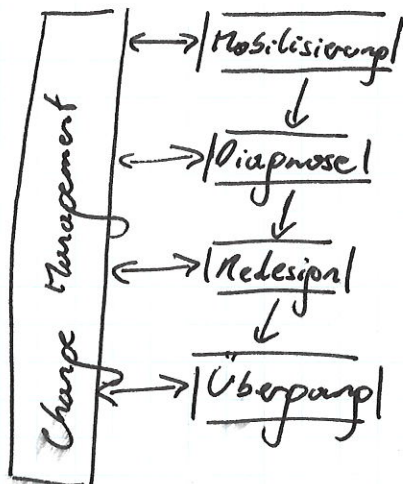 Change Management
Mobilisierung
Diagnose
Redesign
Übergang